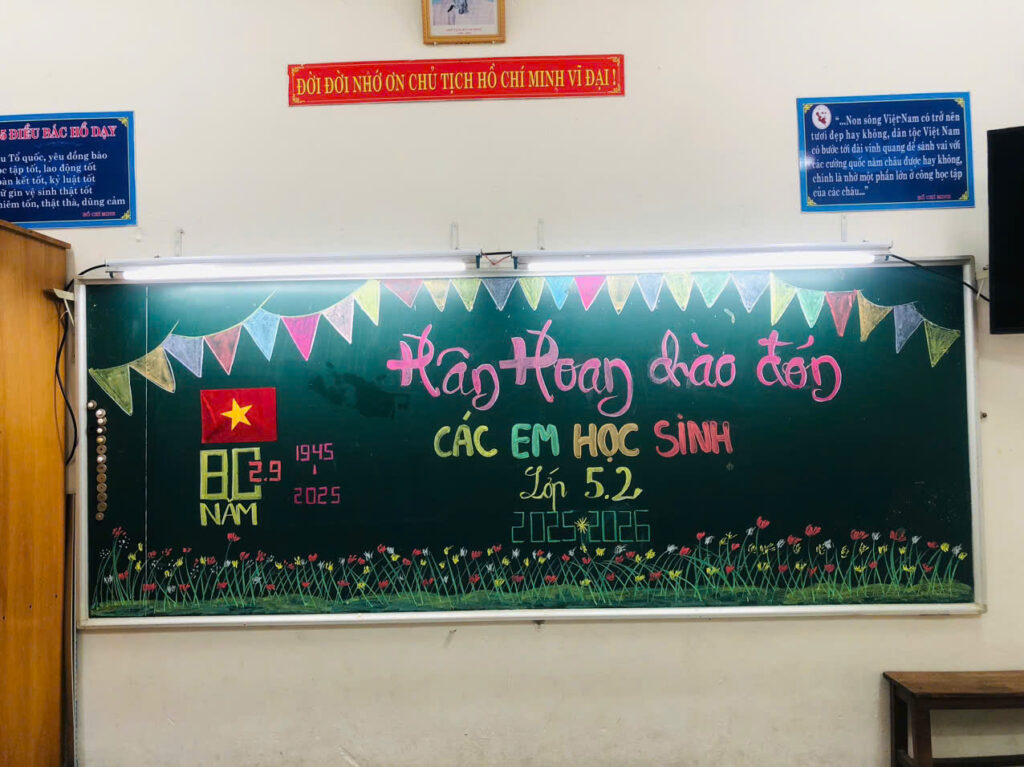 ĐỜI ĐỜI NHỚ ƠN CHỦ TỊCH HỒ CHÍ MINH VĨ ĐẠI !
5 ĐIỀU BÁC HỒ DẠY
Tổ quốc, yêu đồng bào
tập tốt, lao động tốt
kết tốt, kỷ luật tốt
gìn vệ sinh thật tốt
tốn, thật thà, dũng cảm
HỒ CHÍ MINH
“...Non sông Việt Nam có trở nên
tươi đẹp hay không, dân tộc Việt Nam
có bước tới đài vinh quang để sánh vai với
các cường quốc năm châu được hay không,
chính là nhờ một phần lớn ở công học tập
của các cháu...”
HỒ CHÍ MINH
Hân Hoan chào đón
CÁC EM HỌC SINH
Lớp 5.2
2025 2026
80 2.9
NĂM
1945
-
2025